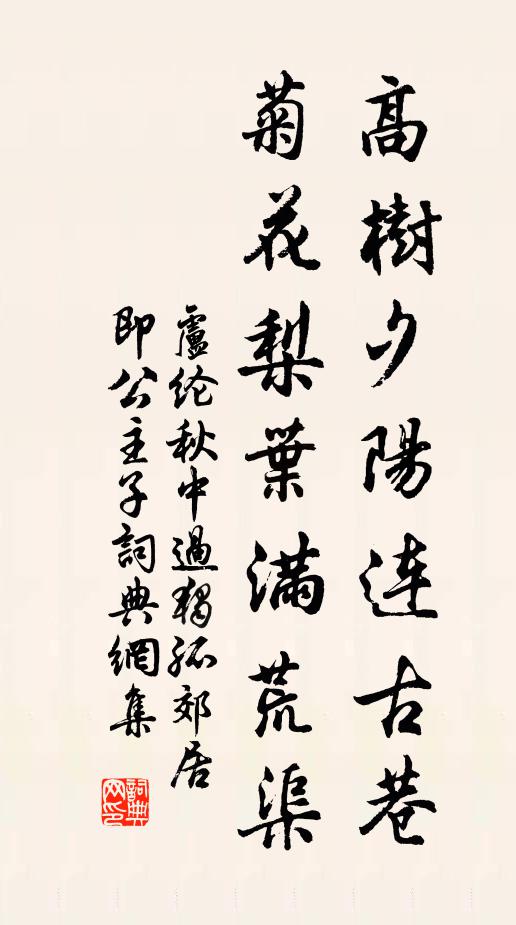 高樹夕陽連古巷
菊花梨葉滿荒渠
盧纶秋中過獨孤郊居
即公主子詞典網集
詞典网印